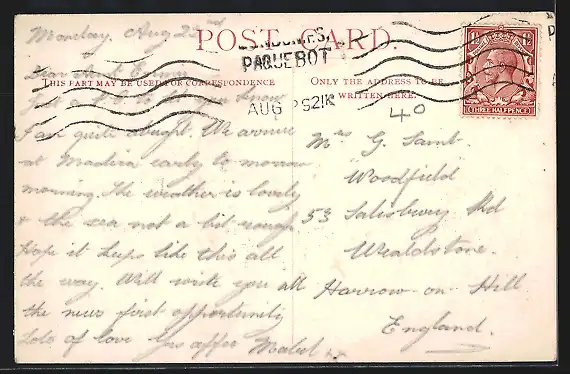 POST CARD.
THIS PART MAY BE USED FOR CORRESPONDENCE
ONLY THE ADDRESS TO BE
WRITTEN HERE.
LONDON F.S.
PAQUEBOT
AUG
1921
1½ 1½
THREE HALFPENCE
40
Monday, Aug 22nd
Dear Aunt
Just a to let you know
I am quite alright. We arrive
at Madiera early to morrow
morning. The weather is lovely
& the sea not a bit rough
Hope it keeps like this all
the way. Will write you all
the news first opportunity
Lots of love Yrs affec Mabel
Mrs G. Samt.
Woodfield
53 Salisbury Rd
Wealdstone.
Harrow-on-Hill
England.